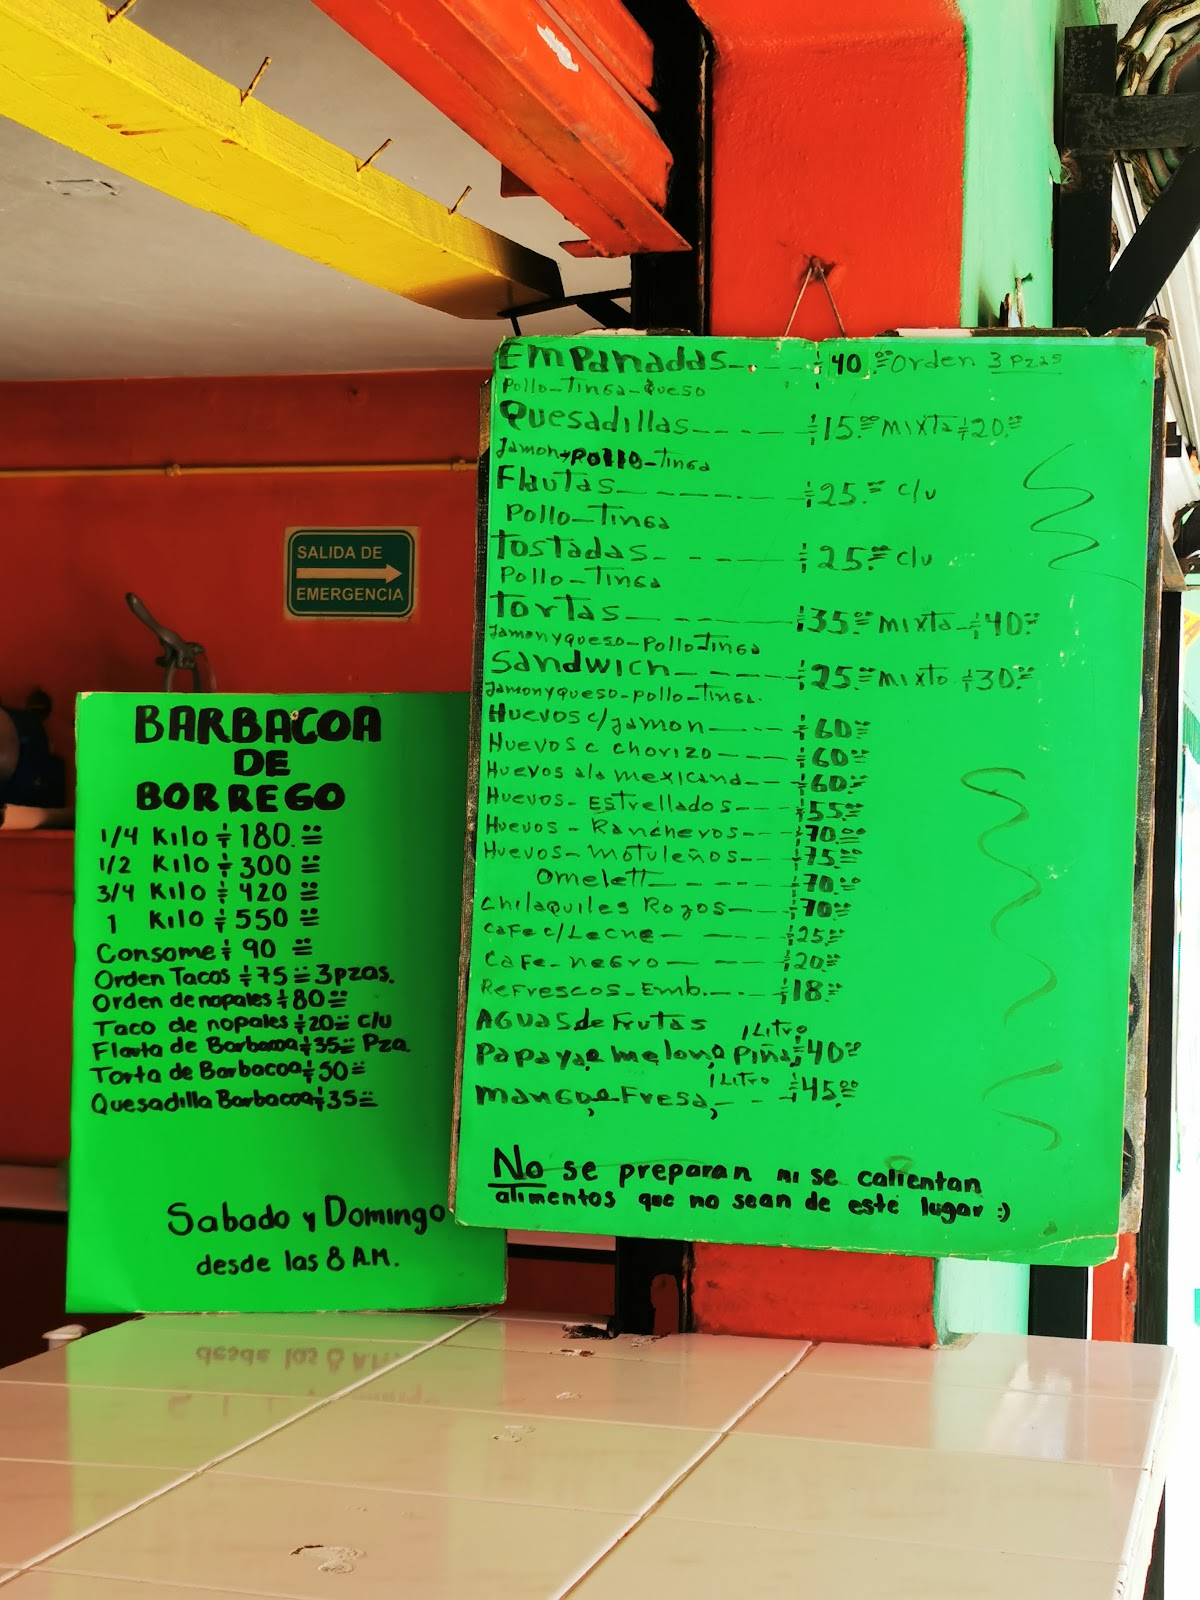 SALIDA DE
EMERGENCIA
BARBACOA
DE
BORREGO
1/4 Kilo $180.00
1/2 Kilo $300.00
3/4 Kilo $420.00
1 Kilo $550.00
Consome $90.00
Orden Tacos $75.00 3 pzas.
Orden de nopales $80.00
Taco de nopales $20.00 c/u
Flauta de Barbacoa $35.00 Pza.
Torta de Barbacoa $50.00
Quesadilla Barbacoa $35.00
Sabado y Domingo
desde las 8 A.M.
EMPanadas---- $40.00 Orden 3 Pzas
Pollo-Tinga-Queso
Quesadillas---- $15.00 mixta $20.00
Jamon, Pollo-Tinga
Flautas------- $25.00 c/u
Pollo-Tinga
Tostadas------ $25.00 c/u
Pollo-Tinga
Tortas------- $35.00 mixta-$40.00
Jamonyqueso-Pollo-Tinga
Sandwich----- $25.00 mixto $30.00
Jamonyqueso-pollo-Tinga.
Huevos c/jamon---- $60.00
Huevos c chorizo--- $60.00
Huevos ala mexicana-- $60.00
Huevos-Estrellados--- $55.00
Huevos-Rancheros--- $70.00
Huevos-Motuleños--- $75.00
Omelett---- $70.00
Chilaquiles Rojos--- $70.00
Cafe c/Leche----- $25.00
Cafe-negro---- $20.00
Refrescos-Emb.--- $18.00
Aguas de Frutas 1 Litro
Papaya, melon, Piña, $40.00
1 Litro
Mango, Fresa, --- $45.00
No se preparan ni se calientan
alimentos que no sean de este lugar :)